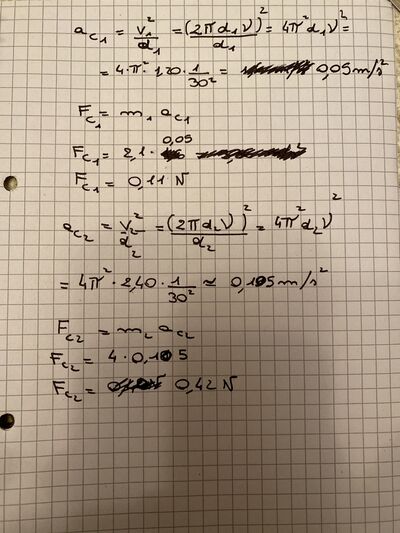 a_c1 = v₁²/d₁ = (2πd₁ν)²/d₁ = 4π²d₁ν² =
= 4·π²·1,20·1/30² = 0,05 m/s²
F_c1 = m₁ a_c1
F_c1 = 2,1 · 0,05
F_c1 = 0,11 N
a_c2 = v₂²/d₂ = (2πd₂ν)²/d₂ = 4π²d₂ν²
= 4π² · 2,40 · 1/30² ≈ 0,105 m/s²
F_c2 = m₂ a_c2
F_c2 = 4 · 0,105
F_c2 = 0,42 N